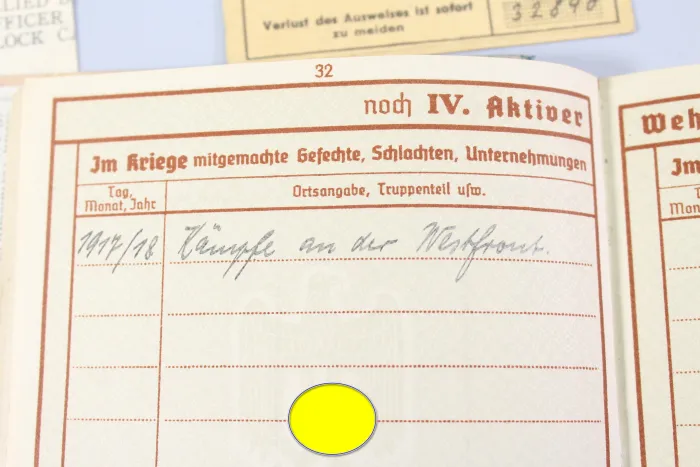 LIED
FFICER
LOCK C
Verlust des Ausweises ist sofort
zu melden
32840
32
noch IV. Aktiver
Im Kriege mitgemachte Gefechte, Schlachten, Unternehmungen
Tag, Monat, Jahr
Ortsangabe, Truppenteil usw.
1917/18 Kämpfe an der Westfront.
Weh
Im
T
Mona